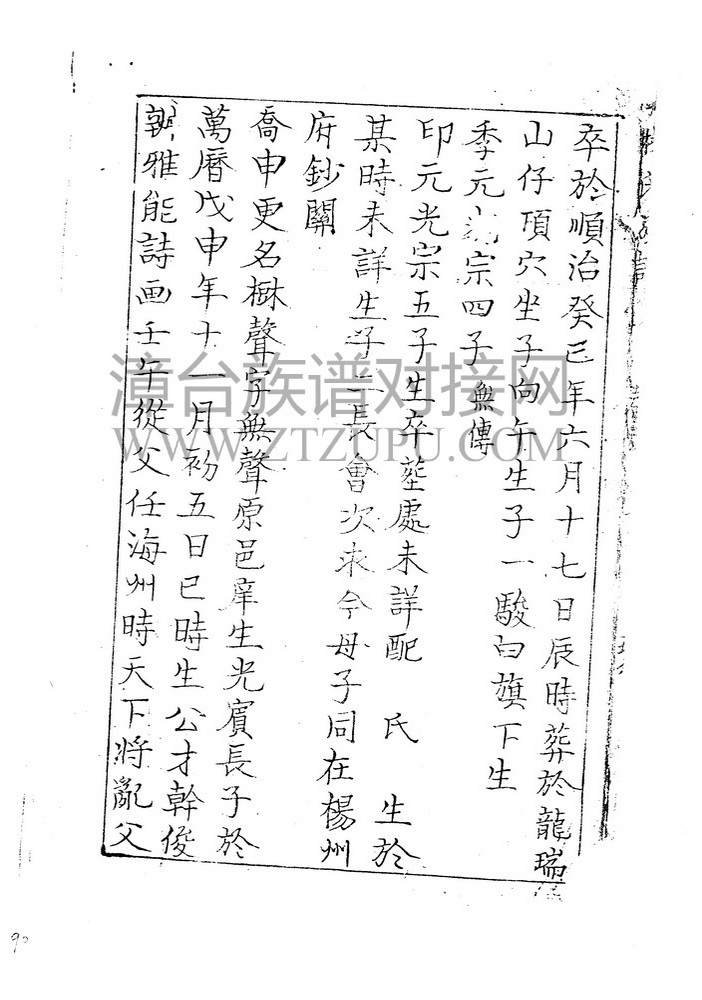 卒於順治癸巳年六月十七日辰時葬於龍瑞
山仔項穴坐子向午生子一駿白旗下生
季元 宗四子無傳
印元光宗五子生卒塟處未詳配 氏 生於
某時未詳生子二長會次求今母子同在楊州
府鈔關
喬申更名楙聲字無聲原邑庠生光賓長子於
萬曆戊申年十一月初五日巳時生公才幹俊
雅能詩画壬午從父任海州時天下將亂父
漳台族谱对接网
WWW.ZTZUPU.COM
90